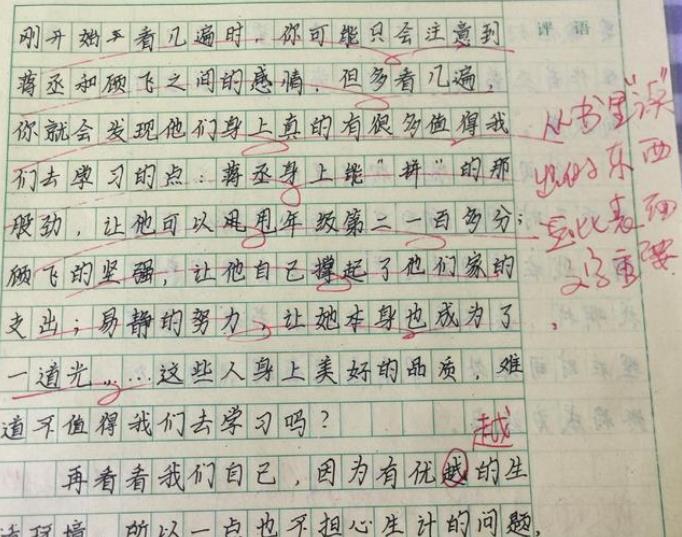 刚开始看几遍时，你可能只会注意到
蒋丞和顾飞之间的感情，但多看几遍，
你就会发现他们身上真的有很多值得我
们去学习的点：蒋丞身上能"拼"的那
股劲，让他可以甩年级第二一百多分；
顾飞的坚强，让他自己撑起了他们家的
支出；易静的努力，让她本身也成为了
一道光……这些人身上美好的品质，难
道不值得我们去学习吗？
越
再看看我们自己，因为有优越的生
活环境，所以一点也不担心生计的问题，
评语
从书里"读"
出的东西
远比表面
文字重要